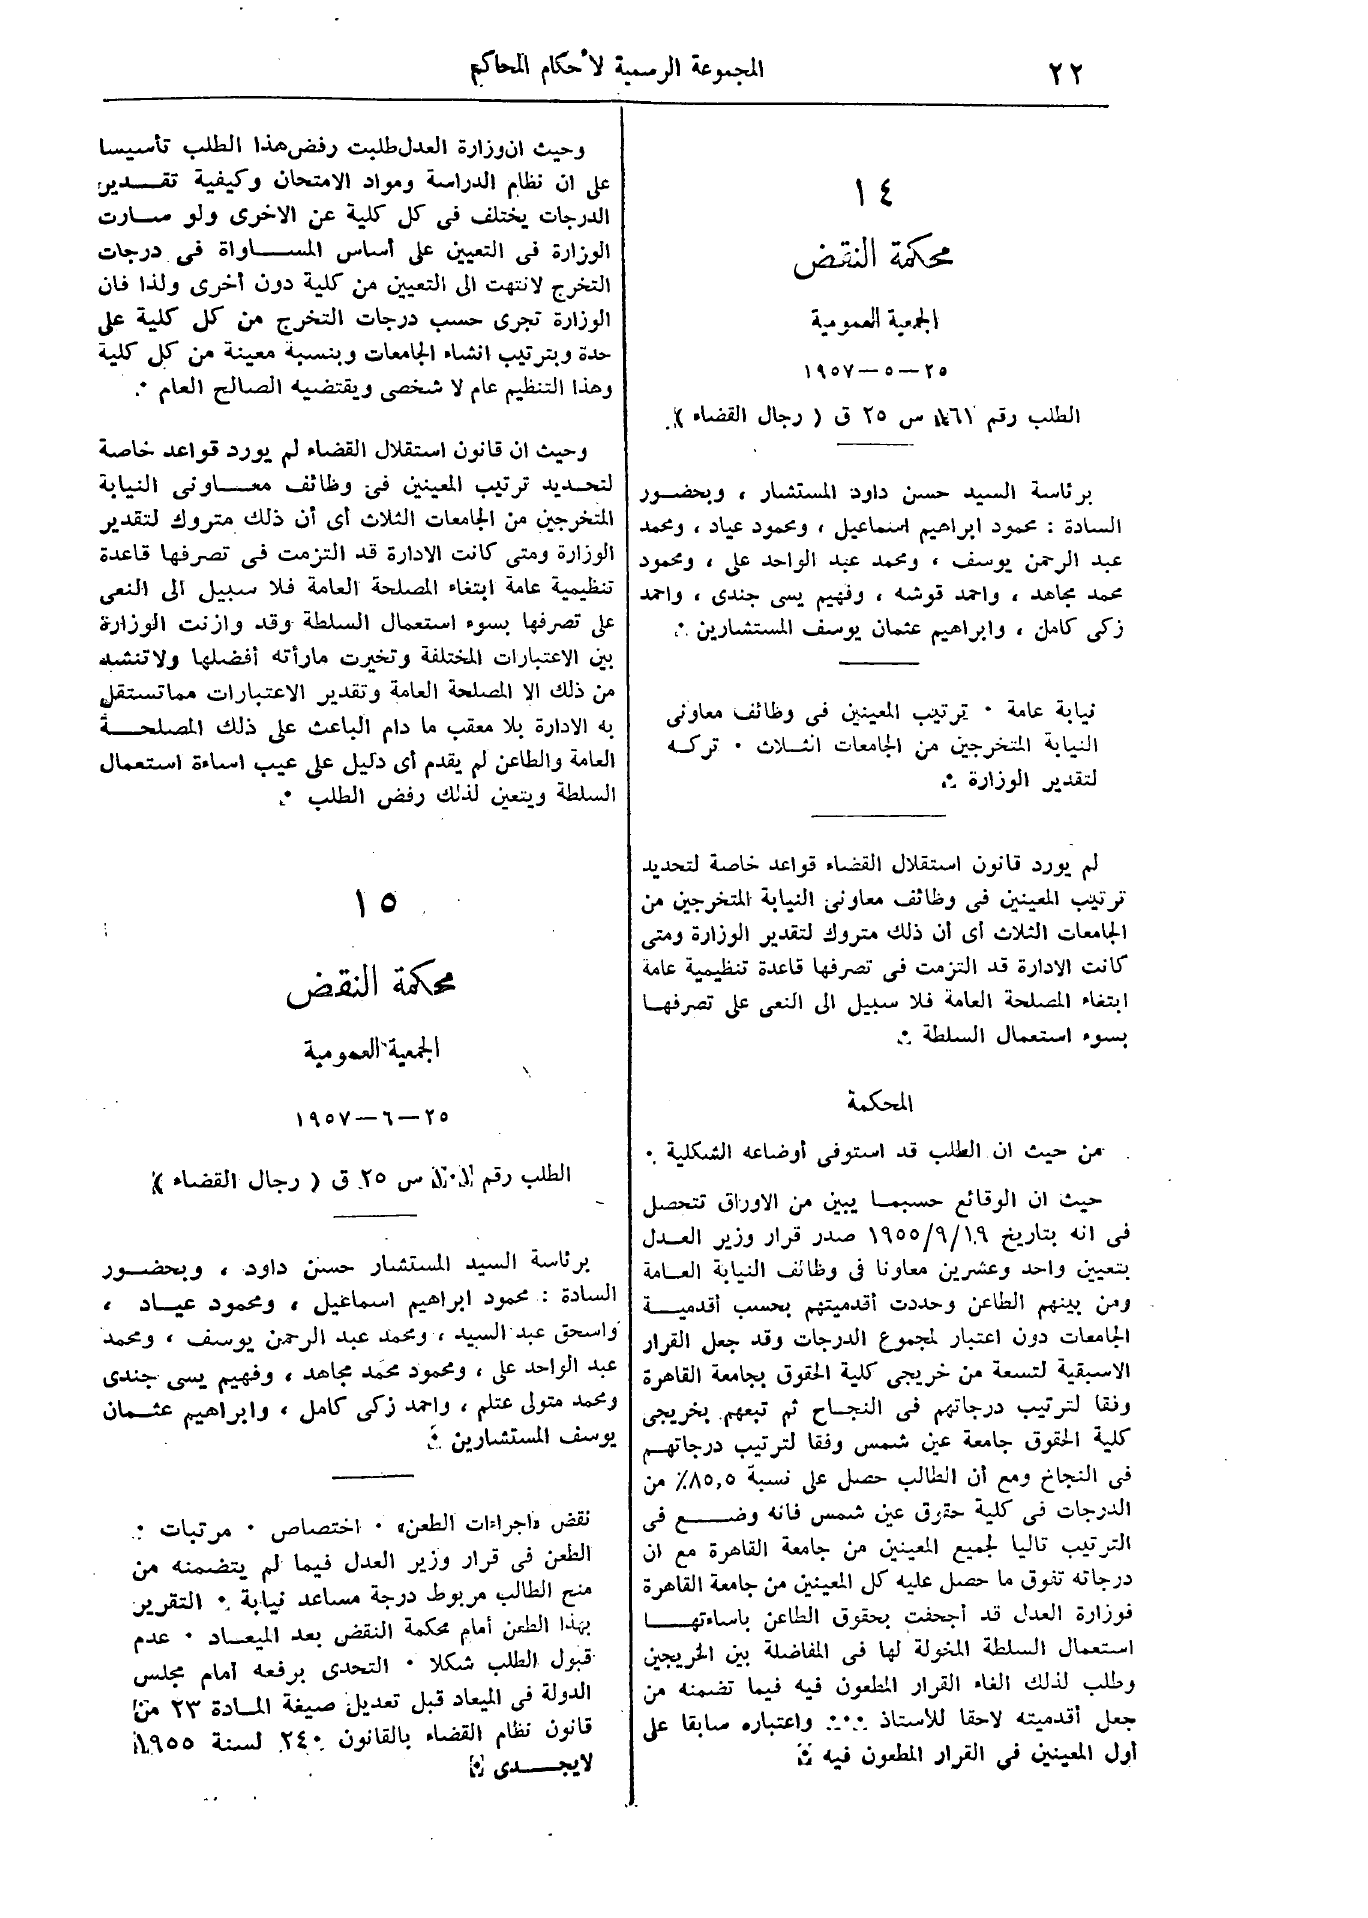 ٢٢
المجموعة الرسمية لأحكام المحاكم
١٤
محكمة النقض
الجمعية العمومية
٢٥ — ٥ — ١٩٥٧
الطلب رقم س ٢٥ ق ( رجال القضاء ) .
برئاسة السيد حسن داود المستشار ، وبحضور
السادة : محمود ابراهيم اسماعيل ، ومحمود عياد ، ومحمد
عبد الرحمن يوسف ، ومحمد عبد الواحد على ، ومحمود
محمد مجاهد ، واحمد قوشه ، وفهيم يسى جندى ، واحمد
زكى كامل ، وابراهيم عثمان يوسف المستشارين .
نيابة عامة . ترتيب المعينين فى وظائف معاونى
النيابة المتخرجين من الجامعات الثلاث . تركه
لتقدير الوزارة .
لم يورد قانون استقلال القضاء قواعد خاصة لتحديد
ترتيب المعينين فى وظائف معاونى النيابة المتخرجين من
الجامعات الثلاث أى أن ذلك متروك لتقدير الوزارة ومتى
كانت الادارة قد التزمت فى تصرفها قاعدة تنظيمية عامة
ابتغاء المصلحة العامة فلا سبيل الى النعى على تصرفها
بسوء استعمال السلطة .
المحكمة
من حيث ان الطلب قد استوفى أوضاعه الشكلية .
حيث ان الوقائع حسبما يبين من الاوراق تتحصل
فى انه بتاريخ ١٩٥٥/٩/١٩ صدر قرار وزير العدل
بتعيين واحد وعشرين معاونا فى وظائف النيابة العامة
ومن بينهم الطاعن وحددت أقدميتهم بحسب أقدمية
الجامعات دون اعتبار لمجموع الدرجات وقد جعل القرار
الاسبقية لتسعة من خريجى كلية الحقوق بجامعة القاهرة
وفقا لترتيب درجاتهم فى النجاح ثم تبعهم بخريجى
كلية الحقوق جامعة عين شمس وفقا لترتيب درجاتهم
فى النجاح ومع أن الطالب حصل على نسبة ٨٥,٥٪ من
الدرجات فى كلية حقوق عين شمس فانه وضع فى
الترتيب تاليا لجميع المعينين من جامعة القاهرة مع ان
درجاته تفوق ما حصل عليه كل المعينين من جامعة القاهرة
فوزارة العدل قد أجحفت بحقوق الطاعن باساءتها
استعمال السلطة المخولة لها فى المفاضلة بين الخريجين
وطلب لذلك الغاء القرار المطعون فيه فيما تضمنه من
جعل أقدميته لاحقا للأستاذ ... واعتباره سابقا على
أول المعينين فى القرار المطعون فيه .
وحيث ان وزارة العدل طلبت رفض هذا الطلب تأسيسا
على ان نظام الدراسة ومواد الامتحان وكيفية تقدير
الدرجات يختلف فى كل كلية عن الاخرى ولو سارت
الوزارة فى التعيين على أساس المساواة فى درجات
التخرج لانتهت الى التعيين من كلية دون أخرى ولذا فان
الوزارة تجرى حسب درجات التخرج من كل كلية على
حدة وبترتيب انشاء الجامعات وبنسبة معينة من كل كلية
وهذا التنظيم عام لا شخصى ويقتضيه الصالح العام .
وحيث ان قانون استقلال القضاء لم يورد قواعد خاصة
لتحديد ترتيب المعينين فى وظائف معاونى النيابة
المتخرجين من الجامعات الثلاث أى أن ذلك متروك لتقدير
الوزارة ومتى كانت الادارة قد التزمت فى تصرفها قاعدة
تنظيمية عامة ابتغاء المصلحة العامة فلا سبيل الى النعى
على تصرفها بسوء استعمال السلطة وقد وازنت الوزارة
بين الاعتبارات المختلفة وتخيرت مارأته أفضلها ولاتنشد
من ذلك الا المصلحة العامة وتقدير الاعتبارات مماتستقل
به الادارة بلا معقب ما دام الباعث على ذلك المصلحة
العامة والطاعن لم يقدم أى دليل على عيب اساءة استعمال
السلطة ويتعين لذلك رفض الطلب .
١٥
محكمة النقض
الجمعية العمومية
٢٥ — ٦ — ١٩٥٧
الطلب رقم س ٢٥ ق ( رجال القضاء )
برئاسة السيد المستشار حسن داود ، وبحضور
السادة : محمود ابراهيم اسماعيل ، ومحمود عياد ،
واسحق عبد السيد ، ومحمد عبد الرحمن يوسف ، ومحمد
عبد الواحد على ، ومحمود محمد مجاهد ، وفهيم يسى جندى
ومحمد متولى عتلم ، واحمد زكى كامل ، وابراهيم عثمان
يوسف المستشارين .
نقض «اجراءات الطعن» . اختصاص . مرتبات .
الطعن فى قرار وزير العدل فيما لم يتضمنه من
منح الطالب مربوط درجة مساعد نيابة . التقرير
بهذا الطعن أمام محكمة النقض بعد الميعاد . عدم
قبول الطلب شكلا . التحدى برفعه أمام مجلس
الدولة فى الميعاد قبل تعديل صيغة المادة ٢٣ من
قانون نظام القضاء بالقانون ٢٤٠ لسنة ١٩٥٥
لايجدى .